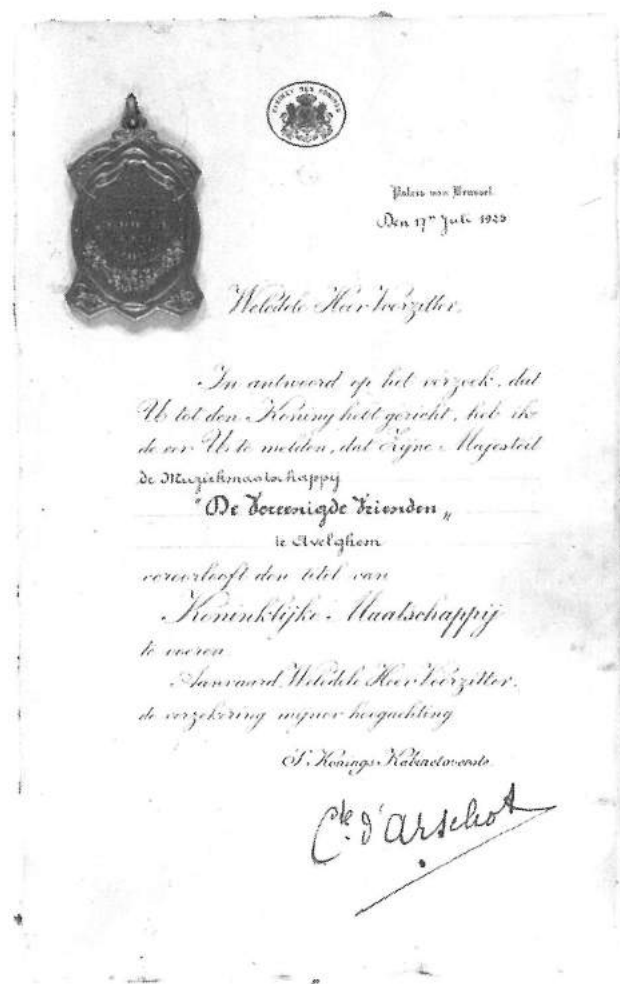 KABINET DES KONINGS
Paleis van Brussel
Den 17ⁿ Juli 192
Weledele Heer Voorzitter,
In antwoord op het verzoek, dat
U tot den Koning hebt gericht, heb ik
de eer U te melden, dat Zijne Majesteit
de Muziekmaatschappij
"De Vereenigde Vrienden„
te Avelghem
veroorlooft den titel van
Koninklijke Maatschappij
te voeren
Aanvaard, Weledele Heer Voorzitter,
de verzekering mijner hoogachting
S' Konings Kabinetsoverste
Cᵗᵉ d'Arschot